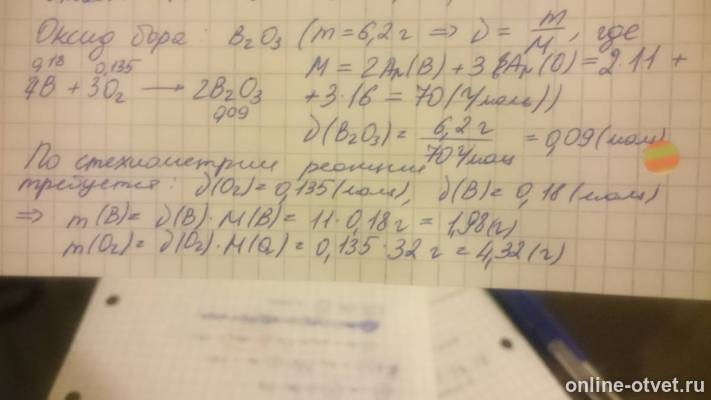 Оксид бора: B₂O₃ (m = 6,2 г ⇒ ν = m/M, где
M = 2Ar(B) + 3Ar(O) = 2·11 +
0,18 0,135
4B + 3O₂ → 2B₂O₃
0,09
+ 3·16 = 70 (г/моль))
ν(B₂O₃) = 6,2 г / 70 г/моль = 0,09 (моль)
По стехиометрии реакции
требуется: ν(O₂) = 0,135 (моль), ν(B) = 0,18 (моль)
⇒ m(B) = ν(B)·M(B) = 11·0,18 г = 1,98 (г)
m(O₂) = ν(O₂)·M(O₂) = 0,135·32 г = 4,32 (г)
online-otvet.ru